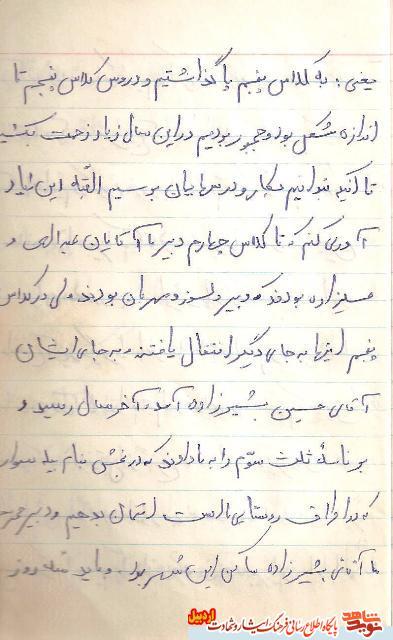 یعنی: به کلاس پنجم پا گذاشتیم و دروس کلاس پنجم تا
اندازه مشکل بود و مجبور بودیم در این سال زیاد زحمت بکشیم
تا آنکه بتوانیم بکار و درسهایمان برسیم البته این را یاد
آوری کنم که تا کلاس چهارم دبیر ما آقایان عبدالهی و
زاده بودند که دبیر دلسوز و مهربان بودند ولی در کلاس
پنجم اینها به جای دیگر انتقال یافتند و به جای ایشان
آقای حسین بشیرزاده آمد، آخر سال رسید و
برنامهٔ ثلث سوّم را به ما دادند که در بخش بنام بیله سوار
که در اطراف روستای ما است امتحان بدهیم و دبیر محترم
ما آقای بشیرزاده ساکن این شهر بود و باید روز
پایگاه اطلاع رسانی فرهنگ ایثار و شهادت اردبیل
نوید شاهد